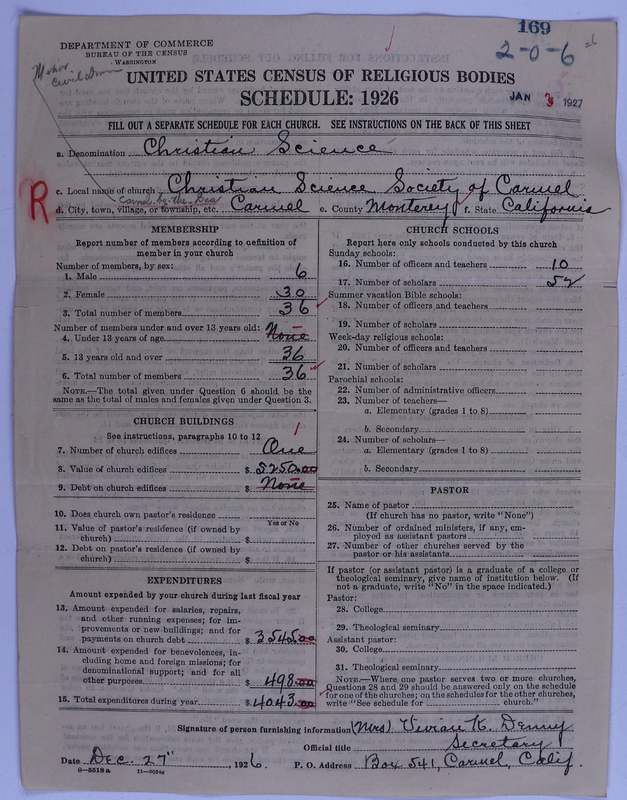 169
2-0-6
DEPARTMENT OF COMMERCE
BUREAU OF THE CENSUS
WASHINGTON
UNITED STATES CENSUS OF RELIGIOUS BODIES
SCHEDULE: 1926
JAN 3 1927
FILL OUT A SEPARATE SCHEDULE FOR EACH CHURCH. SEE INSTRUCTIONS ON THE BACK OF THIS SHEET
a. Denomination Christian Science
R
c. Local name of church Christian Science Society of Carmel
Carmel-by-the-Sea
d. City, town, village, or township, etc. Carmel e. County Monterey f. State California
MEMBERSHIP
Report number of members according to definition of
member in your church
Number of members, by sex:
1. Male 6
2. Female 30
3. Total number of members 36
Number of members under and over 13 years old:
4. Under 13 years of age None
5. 13 years old and over 36
6. Total number of members 36
NOTE.—The total given under Question 6 should be
same as the total of males and females given under Question 3.
CHURCH BUILDINGS
See instructions, paragraphs 10 to 12
7. Number of church edifices One 1
8. Value of church edifices $ 5250.00
9. Debt on church edifices $ None
10. Does church own pastor's residence
Yes or No
11. Value of pastor's residence (if owned by
church) $
12. Debt on pastor's residence (if owned by
church) $
EXPENDITURES
Amount expended by your church during last fiscal year
13. Amount expended for salaries, repairs,
and other running expenses; for im-
provements or new buildings; and for
payments on church debt $ 3545.00
14. Amount expended for benevolences, in-
cluding home and foreign missions; for
denominational support; and for all
other purposes $ 498.00
15. Total expenditures during year $ 4043.00
CHURCH SCHOOLS
Report here only schools conducted by this church
Sunday schools:
16. Number of officers and teachers 10
17. Number of scholars 52
Summer vacation Bible schools:
18. Number of officers and teachers
19. Number of scholars
Week-day religious schools:
20. Number of officers and teachers
21. Number of scholars
Parochial schools:
22. Number of administrative officers
23. Number of teachers—
a. Elementary (grades 1 to 8)
b. Secondary
24. Number of scholars—
a. Elementary (grades 1 to 8)
b. Secondary
PASTOR
25. Name of pastor
(If church has no pastor, write "None")
26. Number of ordained ministers, if any, em-
ployed as assistant pastors
27. Number of other churches served by the
pastor or his assistants
If pastor (or assistant pastor) is a graduate of a college or
theological seminary, give name of institution below. (If
not a graduate, write "No" in the space indicated.)
Pastor:
28. College
29. Theological seminary
Assistant pastor:
30. College
31. Theological seminary
NOTE.—Where one pastor serves two or more churches,
Questions 28 and 29 should be answered only on the schedule
for one of the churches; on the schedules for the other churches,
write "See schedule for church."
Signature of person furnishing information (Mrs) Vivian K. Denny
Official title Secretary
Date Dec. 27", 1926. P. O. Address Box 541, Carmel, Calif.
8-5518a 11-9054a